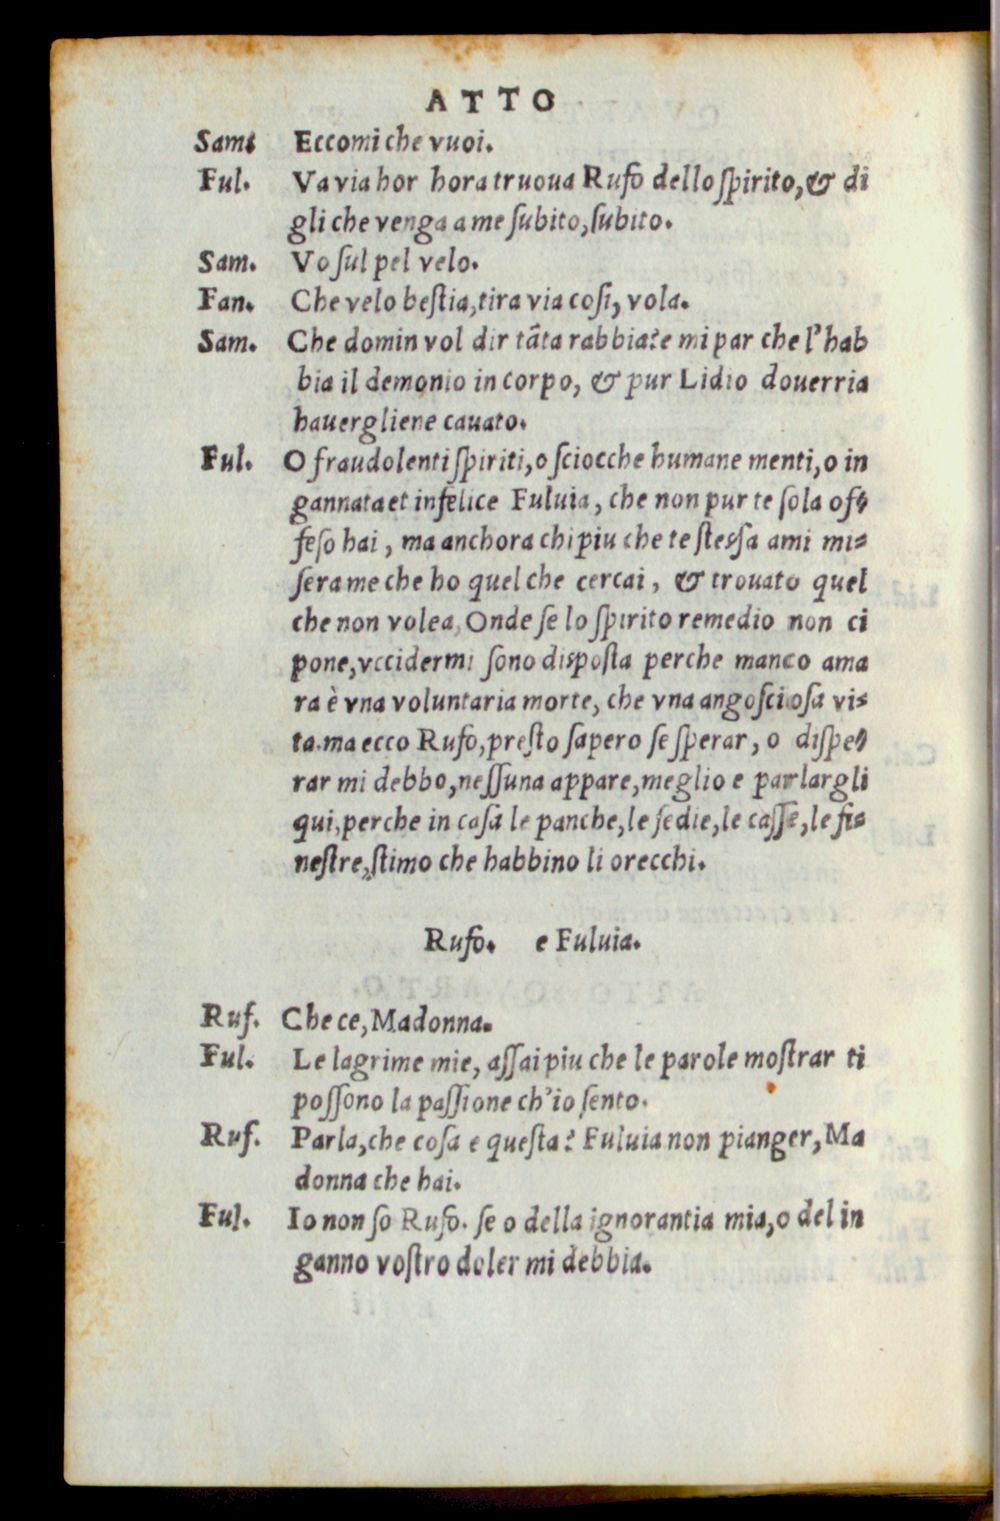 ATTO
Sam. Eccomi che vuoi.
Ful. Va via hor hora truoua Rufo dello ſpirito, & di
gli che venga a me ſubito, ſubito.
Sam. Vo ſul pel velo.
Fan. Che velo beſtia, tira via coſi, vola.
Sam. Che domin vol dir tãta rabbia? e mi par che l'hab
bia il demonio in corpo, & pur Lidio douerria
hauergliene cauato.
Ful. O fraudolenti ſpiriti, o ſciocche humane menti, o in
gannata et infelice Fuluia, che non pur te ſola of-
feſo hai, ma anchora chi piu che te ſtessa ami mi-
ſera me che ho quel che cercai, & trouato quel
che non volea, Onde ſe lo ſpirito remedio non ci
pone, vccidermi ſono dispoſta perche manco ama
ra è vna voluntaria morte, che vna angoſcioſa vi-
ta. ma ecco Rufo, preſto ſapero ſe ſperar, o diſpe-
rar mi debbo, neſſuna appare, meglio e parlargli
qui, perche in caſa le panche, le ſedie, le caſſe, le fi-
neſtre, ſtimo che habbino li orecchi.
Rufo. e Fuluia.
Ruf. Che ce, Madonna.
Ful. Le lagrime mie, aſſai piu che le parole moſtrar ti
poſſono la paſſione ch'io ſento.
Ruf. Parla, che coſa e queſta? Fuluia non pianger, Ma
donna che hai.
Ful. Io non ſo Rufo. ſe o della ignorantia mia, o del in
ganno voſtro doler mi debbia.